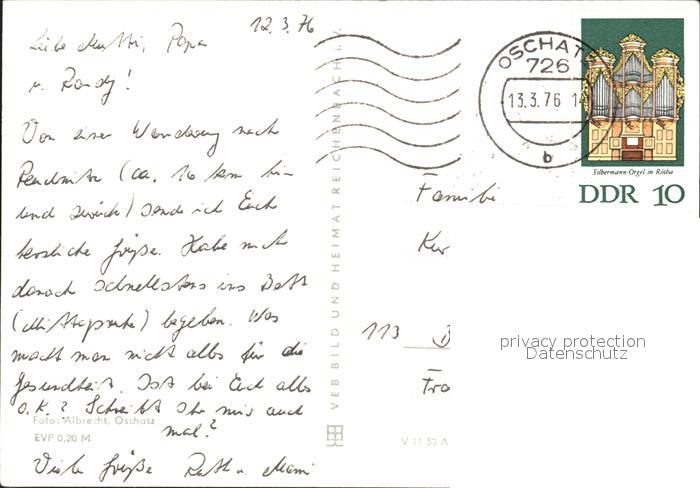 12.3.76
Liebe Mutti, Papa
u. Randy!
Von einer Wanderung nach
(ca. 16 km hin-
und zurück) sende ich Euch
herzliche Grüße. Habe mich
danach schnellstens ins Bett
(Mittagsruhe) begeben. Was
macht man nicht alles für die
Gesundheit. Ist bei Euch alles
O.K.? Schreibt Ihr mir auch
mal?
Viele Grüße
Foto: Albrecht, Oschatz
EVP 0,20 M
VEB BILD UND HEIMAT REICHENBACH I. V.
V 11 50 A
OSCHATZ
726
13.3.76 1
b
Silbermann-Orgel in Rötha
DDR 10
Familie
Kur
113
Fra
privacy protection
Datenschutz